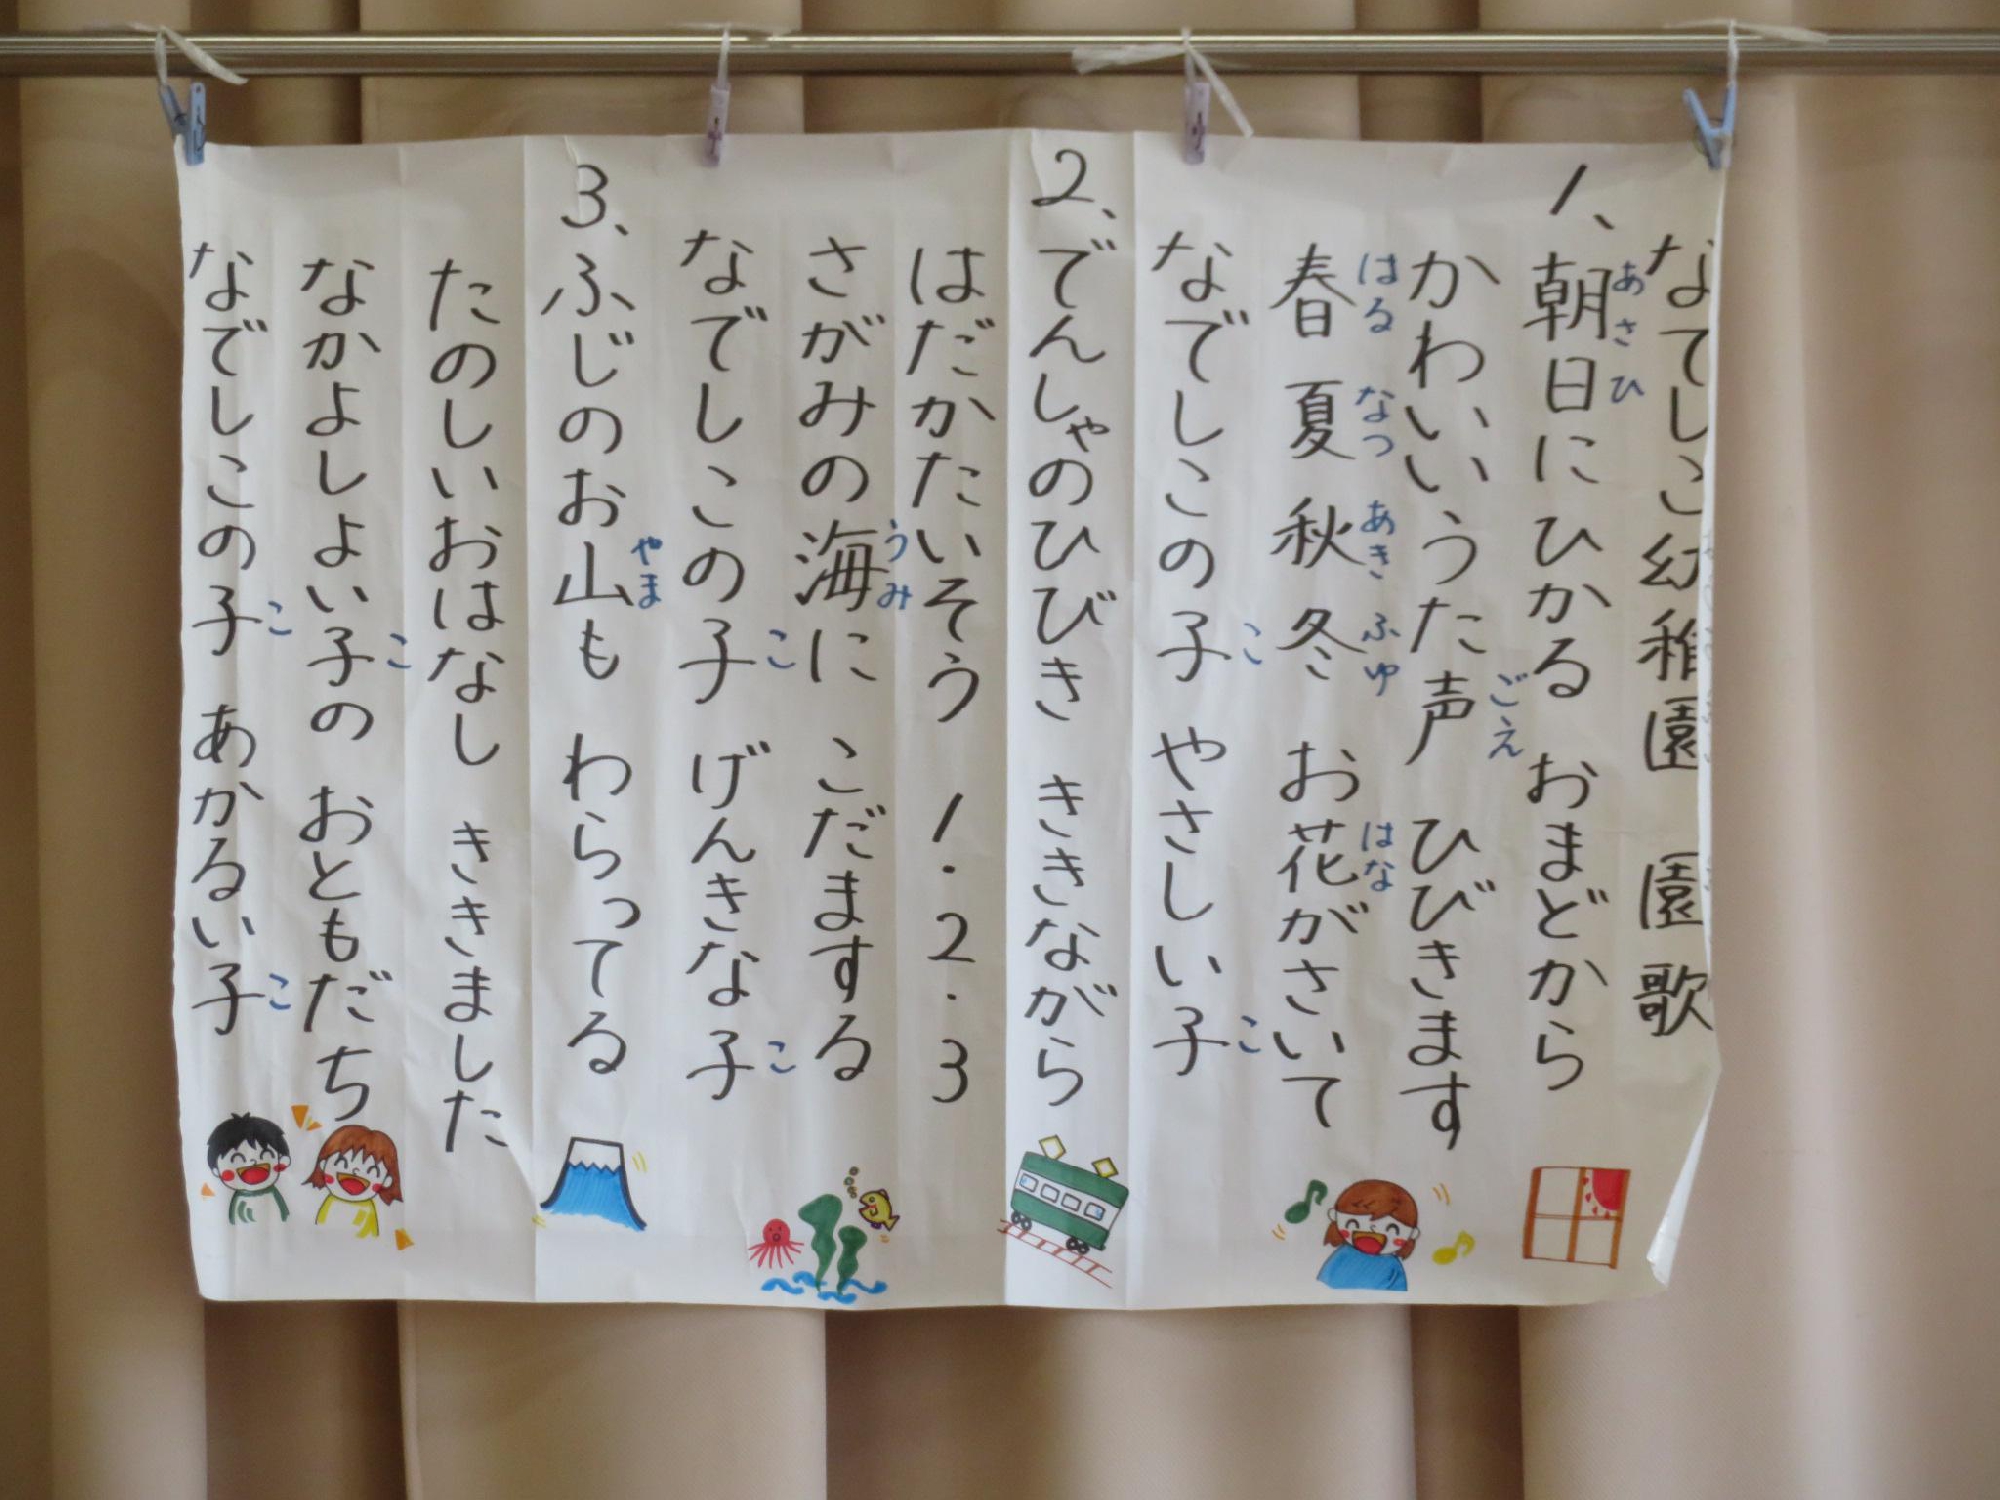 なでしこ幼稚園 園歌
1、朝日にひかる おまどから
かわいいうた声 ひびきます
春夏秋冬 お花がさいて
なでしこの子 やさしい子
2、でんしゃのひびき ききながら
はだかたいそう 1・2・3
さがみの海に こだまする
なでしこの子 げんきな子
3、ふじのお山も わらってる
たのしいおはなし ききました
なかよしよい子の おともだち
なでしこの子 あかるい子
あさひ
ごえ
はる なつ あき ふゆ はな
こ こ
うみ
こ こ
やま
こ
こ こ